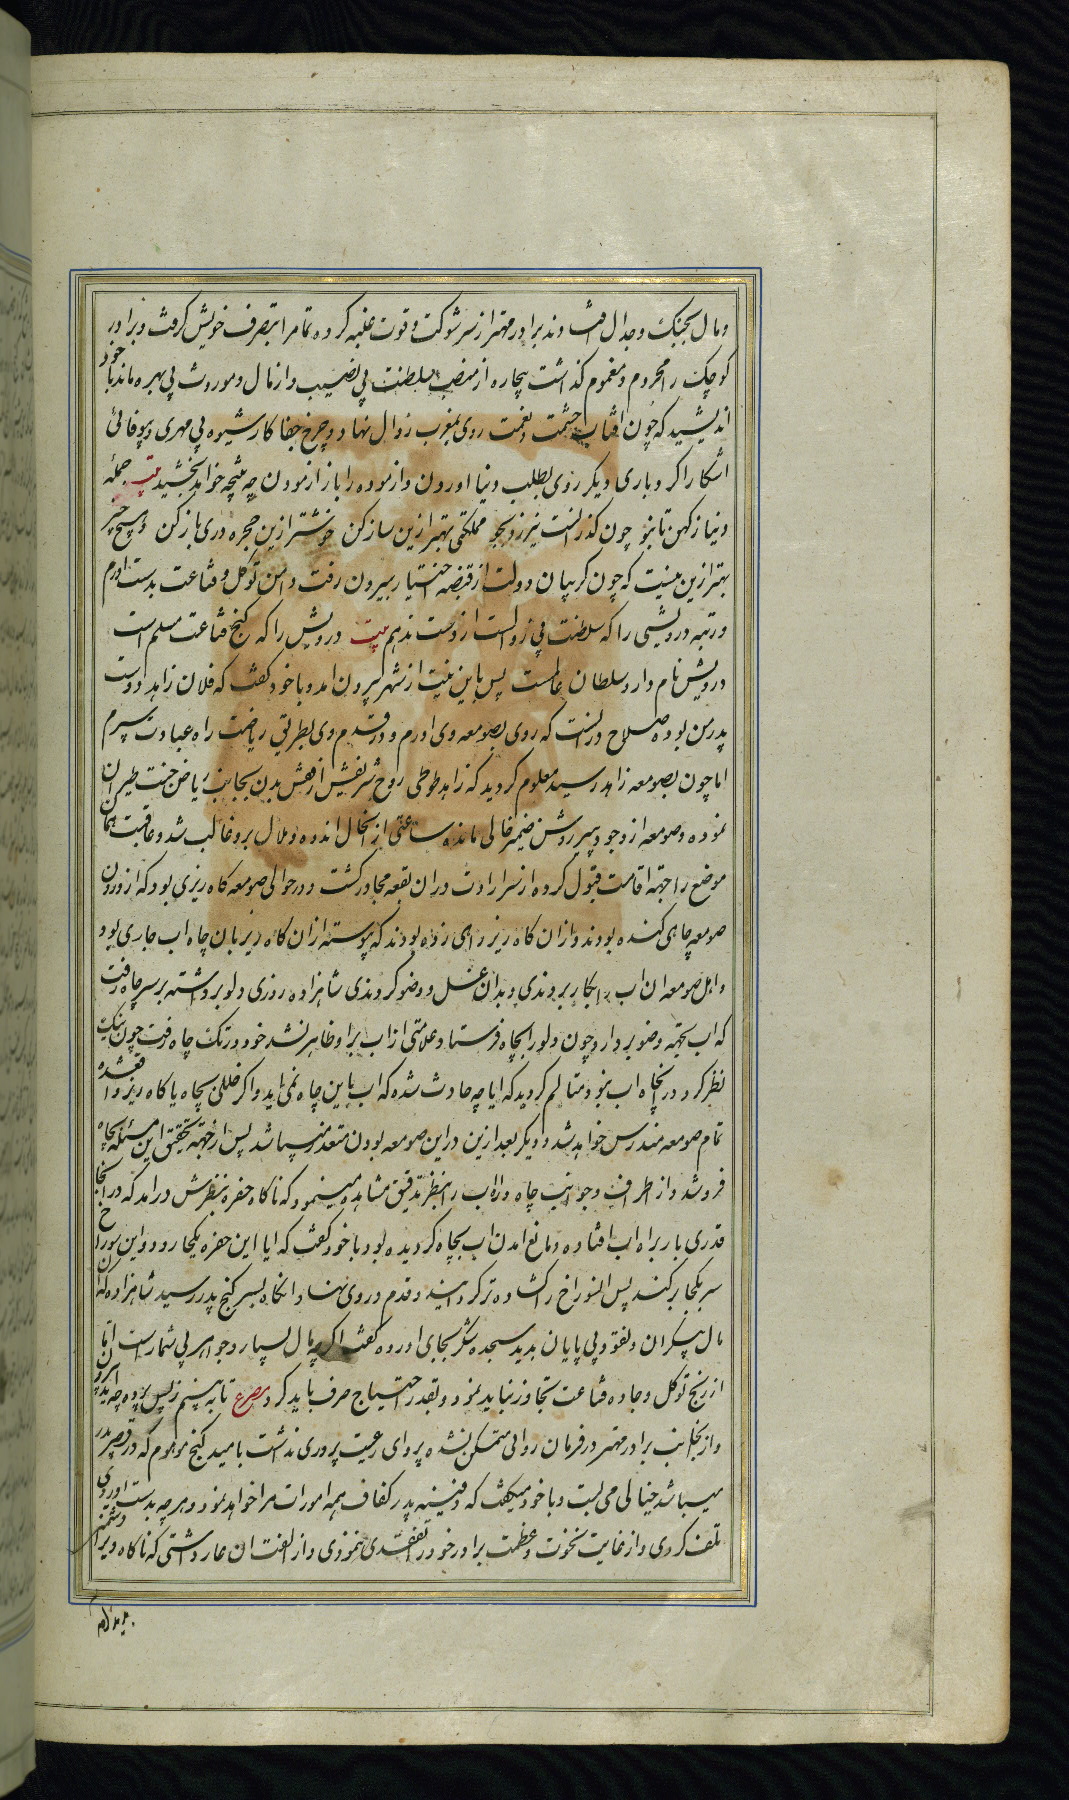 و مال بجنک و جدال افتادند برادر مهتر از سر شوکت و قوت غلبه کرده تمام را بتصرف خویش گرفت و برادر
کوچک را محروم و مغموم گذاشت بیچاره از منصب سلطنت بی نصیب و از مال و موروث بی بهره ماند با خود
اندیشید که چون آفتاب حشمت و نعمت روی بمغرب زوال نهاد و چرخ جفا کار شیوه بی مهری و بیوفائی
اشکارا کرد باری دیگر روی بطلب دنیا اوردن و ازموده را باز ازمودن چه نتیجه خواهد بخشید بیت جملهٔ
دنیا ز کهن تا بنو چون گذرانست نیرزد بجو مملکتی بهتر ازین ساز کن خوشتر ازین حجره دری باز کن هیچ چیز
بهتر ازین نیست که چون گریبان دولت از قبضه اختیار بیرون رفت دامن توکل و قناعت بدست اورم
و رتبه درویشی را که سلطنت بی زوالست از دست ندهم بیت درویش را که گنج قناعت مسلم است
درویش نام دارد و سلطان عالمست پس باین نیت از شهر بیرون امد و با خود گفت که فلان زاهد دوست
پدر من بوده صلاح درانست که روی بصومعه وی اورم و در قدم وی بطریق ریاضت راه عبادت سپرم
اما چون بصومعه زاهد رسید معلوم گردید که زاهد طوطی روح شریفش از قفس بدن بجانب ریاض جنت طیران
نموده و صومعه از وجود پیر روشن ضمیر خالی مانده ساعتی از انحال اندوه و ملال برو غالب شد و عاقبت همان
موضع را جهة اقامت قبول کرده از سر ارادت دران بقعه مجاور گشت و در حوالی صومعه کاه ریزی بود که از درون
صومعه چاهی کنده بودند و ازان کاه ریز راهی زده بودند که پیوسته ازان کاه ریز بان چاه اب جاری بود
و اهل صومعه ان اب را بکار بردندی و بدان غسل و وضو کردندی شاهزاده روزی دلو برداشته بر سر چاه رفت
که اب بجهة وضو بردارد چون دلو را بچاه فرستاد علامتی از اب برا و ظاهر نشد خود در تک چاه رفت چون نیک
نظر کرد در بنچاه اب نبود متالم گردید که ایا چه حادث شده که اب باین چاه نمی اید و اگر خللی بچاه یا کاه ریز واقعشده
تمام صومعه مندرس خواهد شد و دیگر بعد ازین درین صومعه بودن متعذر میباشد پس از جهة تحقیق این مسئله بچاه
فرو شد و از اطراف و جوانب چاه و راه اب را بنظر تدقیق مشاهده مینمود که ناکاه حفره بنظرش درامد که در انجا
قدری بار براه اب افتاده و مانع امدن اب بچاه گردیده بود با خود گفت که ایا این حفره بکجا رود و این سوراخ
سر بکجا بر کند پس انسوراخ را گشاده تر گردانید و قدم در وی نهاد و انگاه بسر گنج پدر رسید شاهزاده که ان
مال بیکران و نقود بی پایان بدید سجده شکر بجای اورده گفت اگرچه مال بسیار و جواهر بی شمار است اما
از نهج توکل و جاده قناعت تجاوز نباید نمود و بقدر احتیاج صرف باید کرد مصرع تا به بینم ز پس پرده چه آید بیرون
و ازینجانب برادر مهتر در فرمان روائی متمکن شده پروای رعیت پروری نداشت بامید گنج موهوم که در قصر پدر
میباشد خیالی می بست و با خود میگفت که دفینه پدر کفاف همه امورات مرا خواهد نمود و هر چه بدست اوردی
تلف کردی و از غایت نخوت و عظمت برادر خود را تفقدی ننمودی و از الفت ان عار داشتی که ناگاه ویرا دشمنی
پدید امد